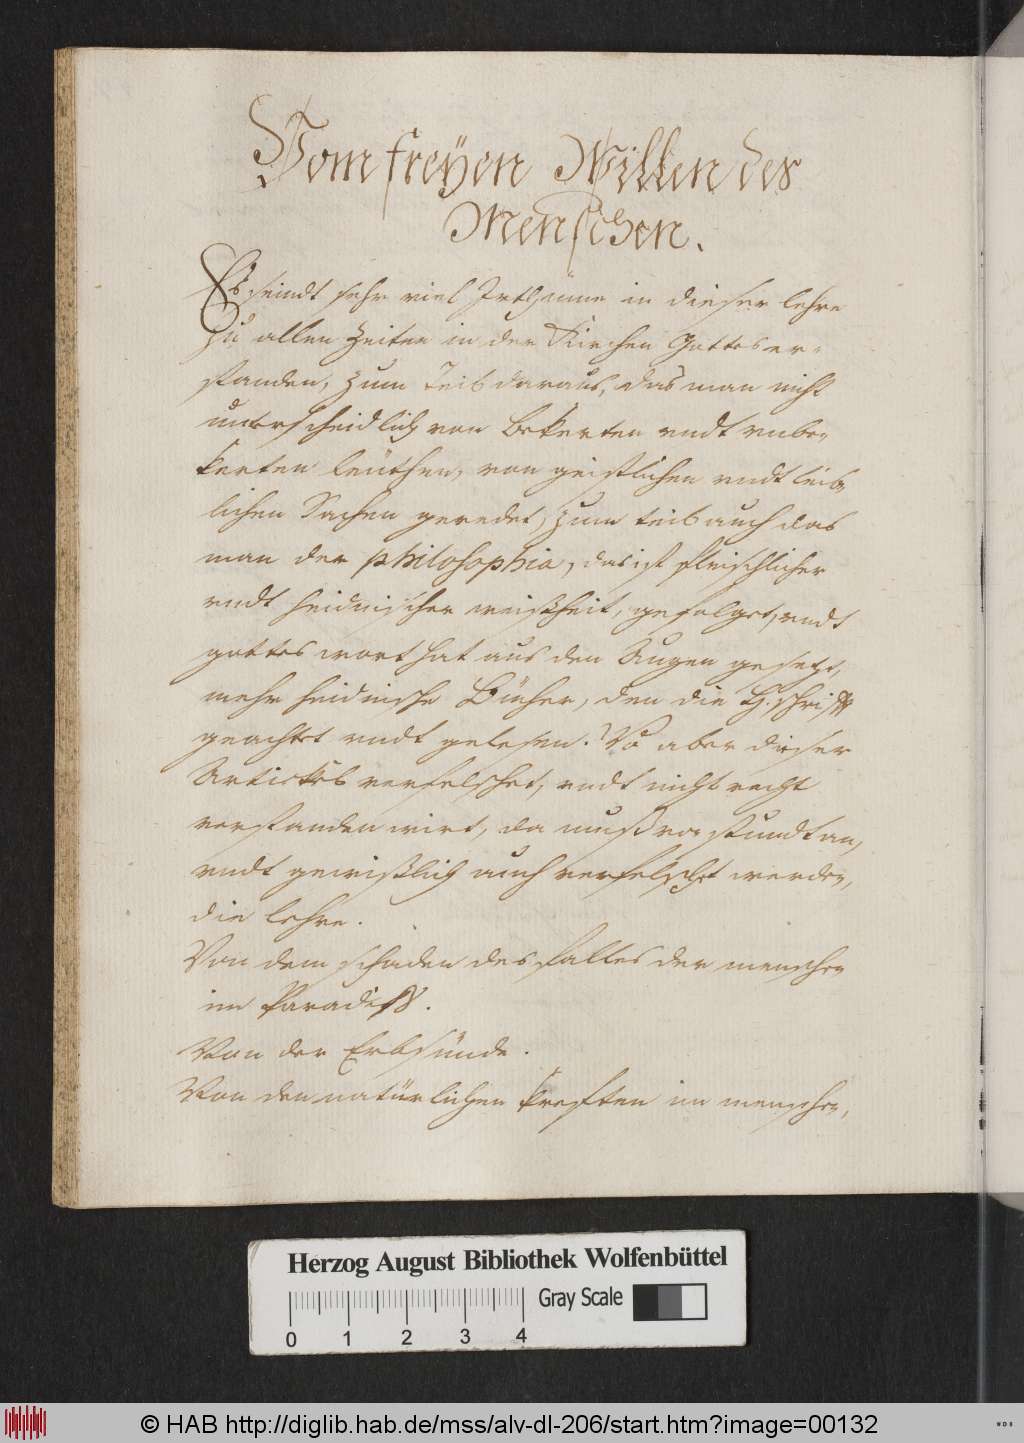 Vom freyen Willen des
Menschen.
Es seindt sehr viel Irthumme in dieser lehre
zu allen Zeiten in der Kirchen Gottes er-
standen, zum Teils daraus, das man nicht
unterscheidlich von bekerten vndt vnbe-
kerten leüthen, von geistlichen vndt leib
lichen Sachen geredet, zum teils auch das
man der philosophia, das ist fleischlicher
vndt heidnischer weißheit, gefolget, vndt
gottes wort hat aus den Augen gesetzt,
mehr heidnische Bücher, den die H. schrifft
geachtet vndt gelesen. Wo aber dieser
Artickel verfelschet, vndt nicht recht
verstanden wirt, da muß von stundt an,
vndt gewißlich auch verfelscht werden,
die lehre.
Von dem schaden des falles der menschen
im Paradiß.
Von der Erbsünde.
Von den natürlichen kreften im menschen,
Herzog August Bibliothek Wolfenbüttel
Gray Scale
0 1 2 3 4
© HAB http://diglib.hab.de/mss/alv-dl-206/start.htm?image=00132